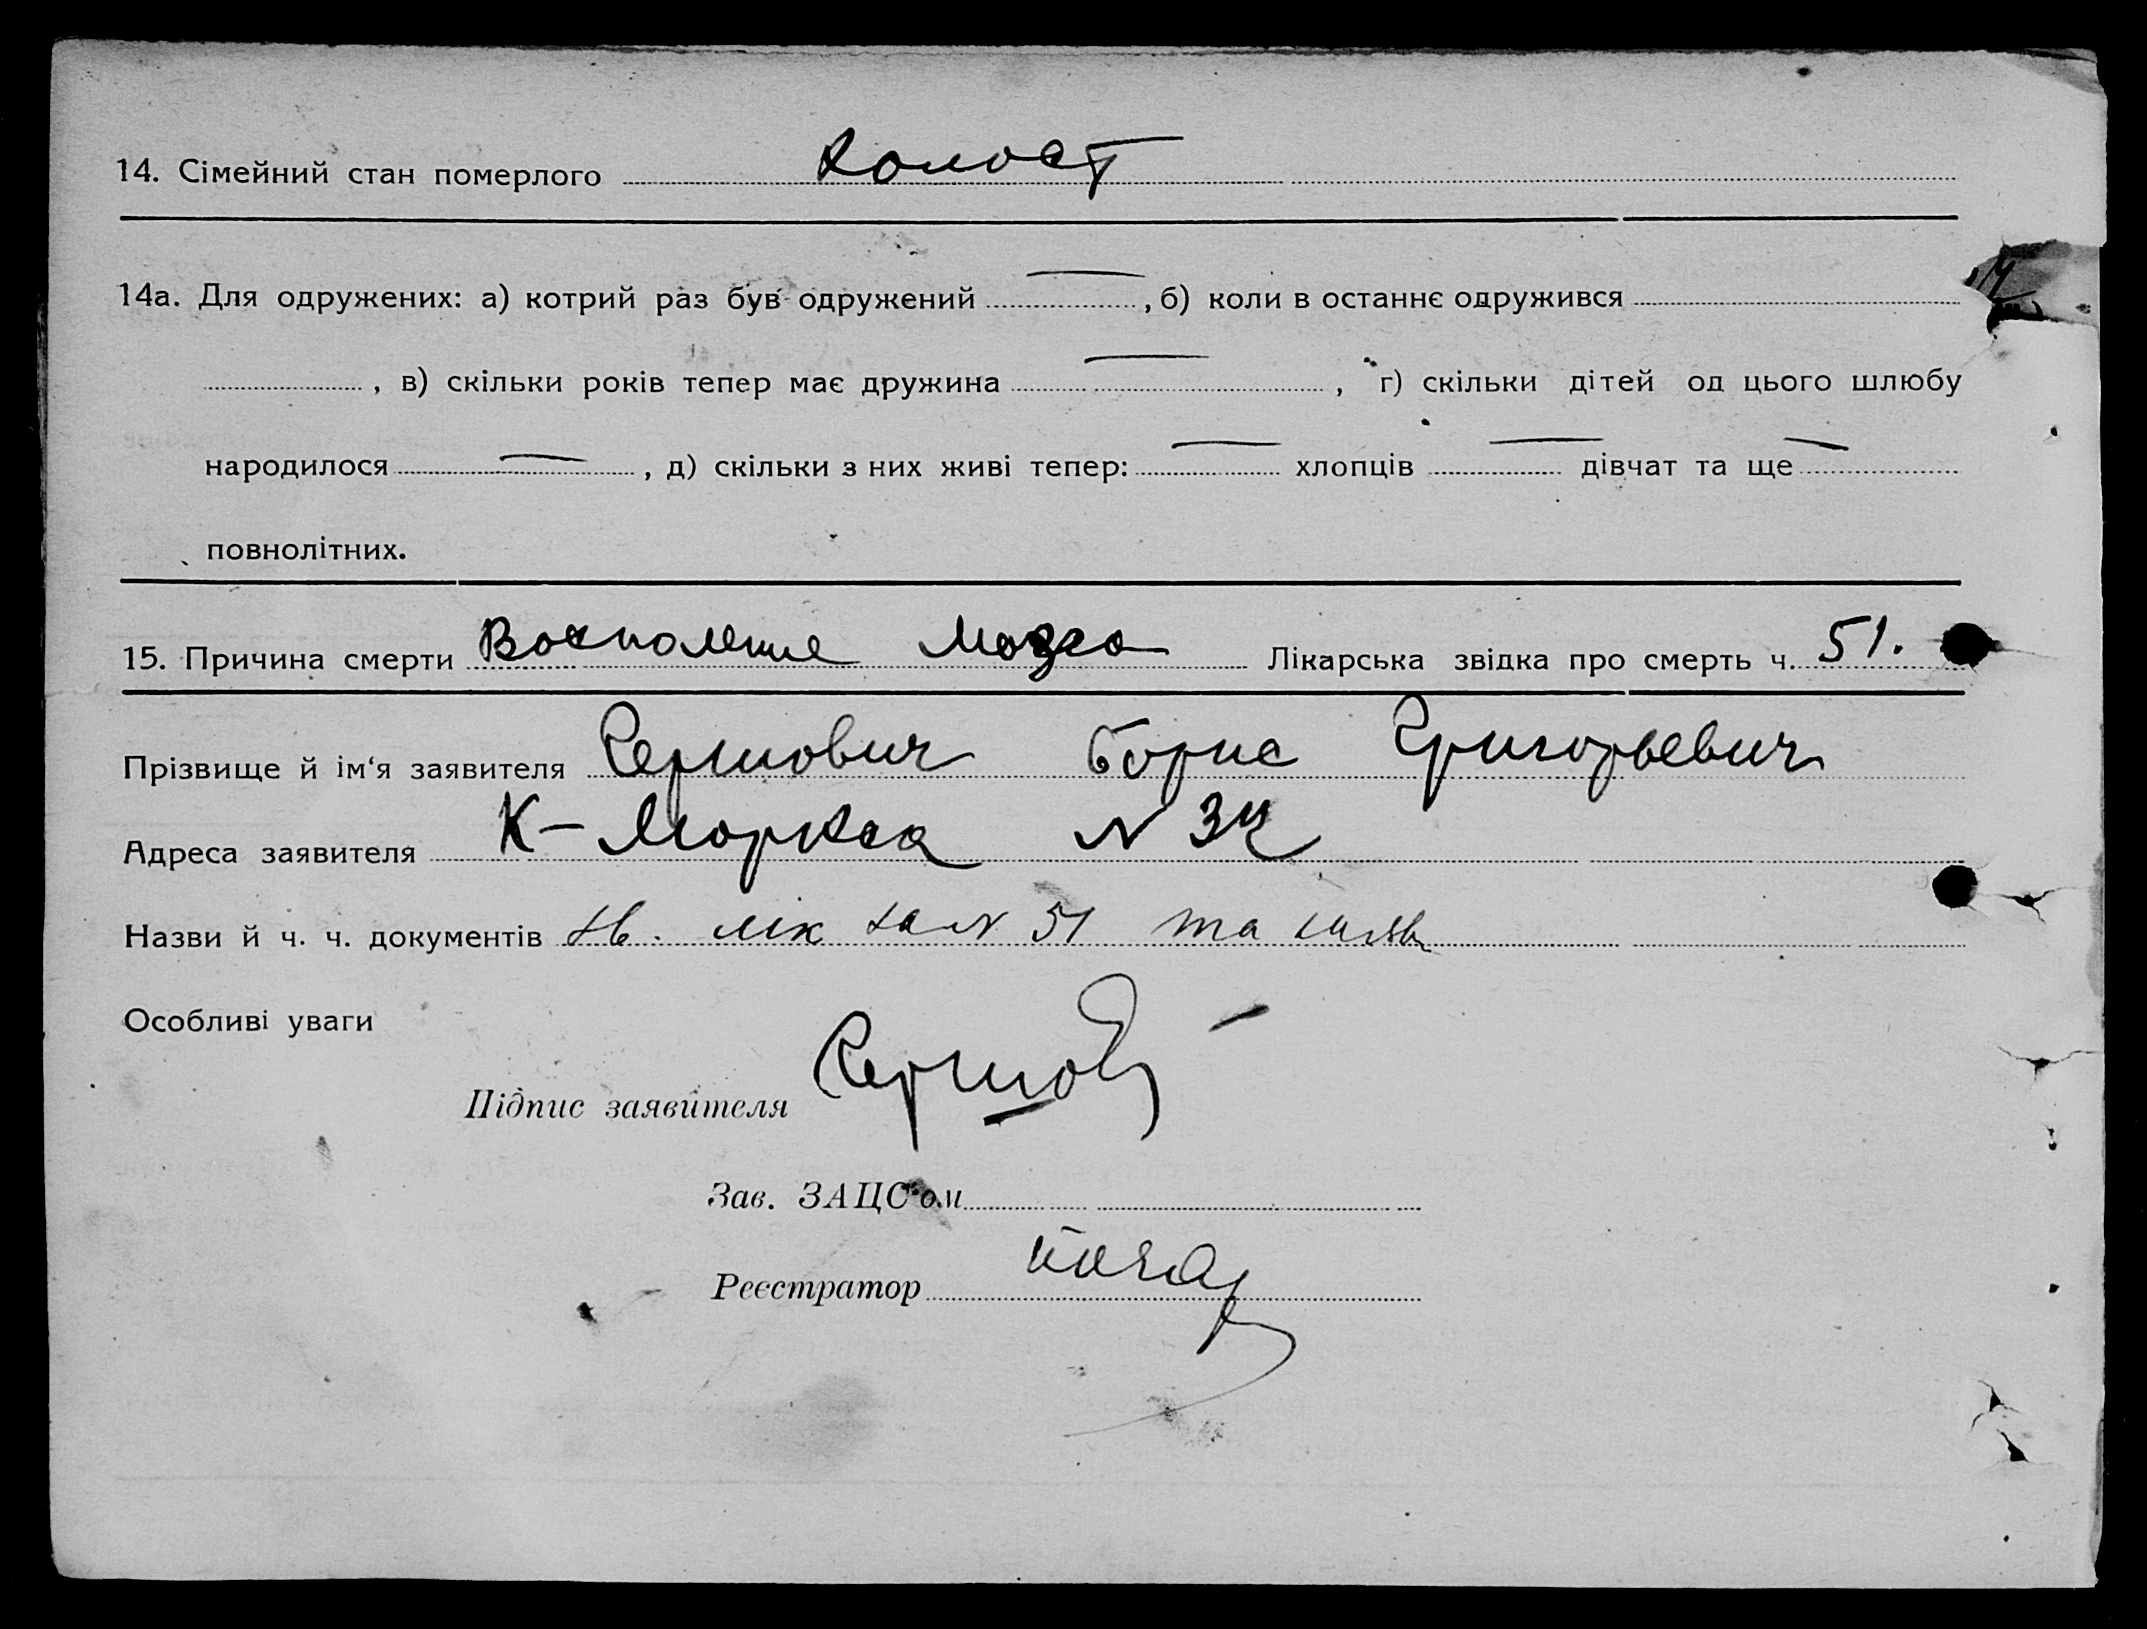 14. Сімейний стан померлого холост
14а. Для одружених: а) котрий раз був одружений — , б) коли в останнє одружився
, в) скільки років тепер має дружина — , г) скільки дітей од цього шлюбу
народилося — , д) скільки з них живі тепер: — хлопців — дівчат та ще —
повнолітних.
15. Причина смерти Воспаление Мозга Лікарська звідка про смерть ч. 51.
Прізвище й ім'я заявителя Борис Григорьевич
Адреса заявителя К-Маркса N
Назви й ч. ч. документів лік за N 51 та
Особливі уваги
Підпис заявителя
Зав. ЗАЦС'ом
Реєстратор